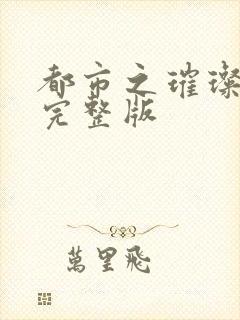 都市之璀璨
完整版
萬里飛